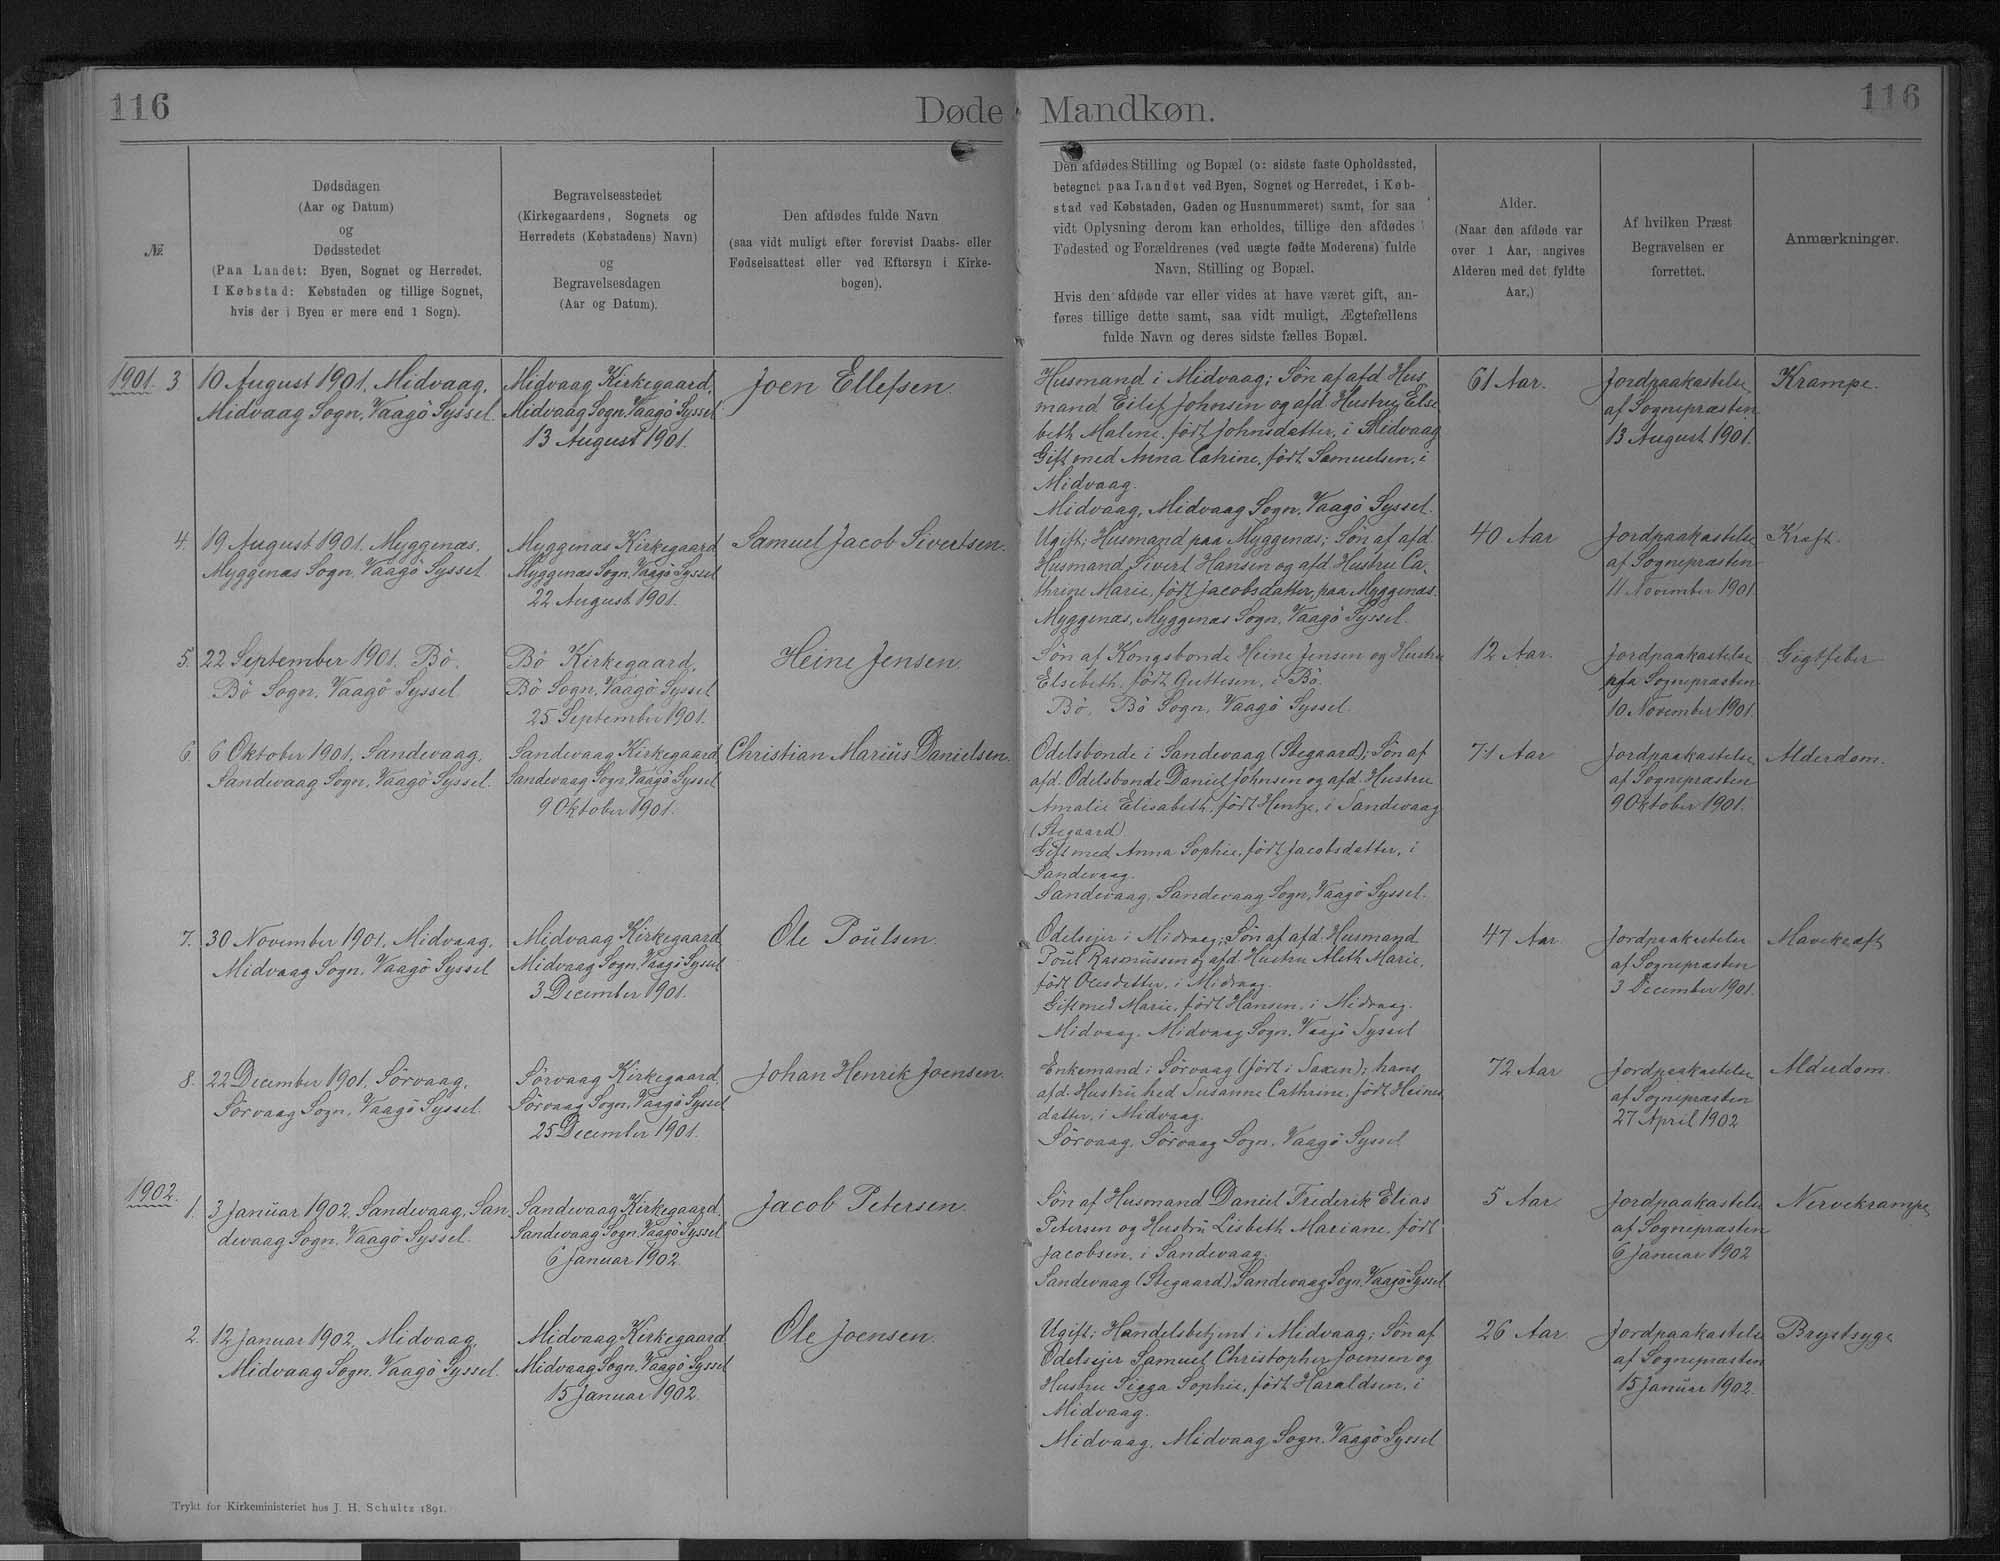 116
Døde Mandkøn.
116
№
Dødsdagen
(Aar og Datum)
og
Dødsstedet
(Paa Landet: Byen, Sognet og Herredet.
I Købstad: Købstaden og tillige Sognet,
hvis der i Byen er mere end 1 Sogn).
Begravelsesstedet
(Kirkegaardens, Sognets og
Herredets (Købstadens) Navn)
og
Begravelsesdagen
(Aar og Datum).
Den afdødes fulde Navn
(saa vidt muligt efter forevist Daabs- eller
Fødselsattest eller ved Eftersyn i Kirke-
bogen).
Den afdødes Stilling og Bopæl (ɔ: sidste faste Opholdssted,
betegnet paa Landet ved Byen, Sognet og Herredet, i Køb-
stad ved Købstaden, Gaden og Husnummeret) samt, for saa
vidt Oplysning derom kan erholdes, tillige den afdødes
Fødested og Forældrenes (ved uægte fødte Moderens) fulde
Navn, Stilling og Bopæl.
Hvis den afdøde var eller vides at have været gift, an-
føres tillige dette samt, saa vidt muligt, Ægtefællens
fulde Navn og deres sidste fælles Bopæl.
Alder.
(Naar den afdøde var
over 1 Aar, angives
Alderen med det fyldte
Aar.)
Af hvilken Præst
Begravelsen er
forrettet.
Anmærkninger.
1901. 3
10 August 1901, Midvaag,
Midvaag Sogn, Vaagö Syssel.
Midvaag Kirkegaard,
Midvaag Sogn, Vaagö Syssel
13 August 1901.
Joen Ellefsen.
Husmand i Midvaag; Søn af afd. Hus-
mand Eilef Johnsen og afd. Hustru Else
beth Malene, født Johnsdatter, i Midvaag
Gift med Anna Catrine, født Samuelsen, i
Midvaag.
Midvaag, Midvaag Sogn, Vaagö Syssel.
61 Aar.
Jordpaakastelse
af Sognepræsten
13 August 1901.
Krampe.
4.
19 August 1901, Myggenæs,
Myggenæs Sogn, Vaagö Syssel
Myggenæs Kirkegaard
Myggenæs Sogn, Vaagö Syssel
22 August 1901.
Samuel Jacob Sivertsen.
Ugift; Husmand paa Myggenæs; Søn af afd.
Husmand Sivert Hansen og afd. Hustru Ca-
thrine Marie, født Jacobsdatter, paa Myggenæs.
Myggenæs, Myggenæs Sogn, Vaagö Syssel.
40 Aar
Jordpaakastelse
af Sognepræsten
11 November 1901
Kræft.
5.
22 September 1901. Bö.
Bö Sogn, Vaagö Syssel
Bö Kirkegaard,
Bö Sogn, Vaagö Syssel
25 September 1901.
Heine Jensen
Søn af Kongsbonde Heine Jensen og Hustru
Elsebeth, født Guttesen, i Bö.
Bö, Bö Sogn, Vaagö Syssel.
12 Aar.
Jordpaakastelse
Sognepræsten
10 November 1901.
Gigtfeber
6.
6 Oktober 1901, Sandevaag,
Sandevaag Sogn, Vaagö Syssel.
Sandevaag Kirkegaard
Sandevaag Sogn, Vaagö Syssel
9 Oktober 1901.
Christian Marius Danielsen.
Odelsbonde i Sandevaag (Stegaard); Søn af
afd. Odelsbonde Daniel Johnsen og afd. Hustru
Amalie Elisabeth, født Hentze, i Sandevaag
(Stegaard).
Gift med Anna Sophie, født Jacobsdatter, i
Sandevaag.
Sandevaag, Sandevaag Sogn, Vaagö Syssel.
71 Aar
Jordpaakastelse
af Sognepræsten
9 Oktober 1901.
Alderdom.
7.
30 November 1901, Midvaag,
Midvaag Sogn, Vaagö Syssel
Midvaag Kirkegaard
Midvaag Sogn, Vaagö Syssel
3 December 1901.
Ole Poulsen.
Odelsejer i Midvaag; Søn af afd. Husmand
Poul Rasmussen og afd. Hustru Aleth Marie,
født Olesdatter, i Midvaag.
Gift med Marie, født Hansen, i Midvaag.
Midvaag, Midvaag Sogn, Vaagö Syssel
47 Aar
Jordpaakastelse
af Sognepræsten
3 December 1901.
Mavekræft
8.
22 December 1901, Sörvaag,
Sörvaag Sogn, Vaagö Syssel.
Sörvaag Kirkegaard
Sörvaag Sogn, Vaagö Syssel
25 December 1901.
Johan Henrik Joensen.
Enkemand i Sörvaag (født i Saxen); hans
afd. Hustru hed Susanne Cathrine, født Heines
datter, i Midvaag.
Sörvaag, Sörvaag Sogn, Vaagö Syssel
72 Aar
Jordpaakastelse
af Sognepræsten
27 April 1902
Alderdom.
1902.
1.
3 Januar 1902, Sandevaag, San-
devaag Sogn, Vaagö Syssel.
Sandevaag Kirkegaard
Sandevaag Sogn, Vaagö Syssel
6 Januar 1902.
Jacob Petersen.
Søn af Husmand Daniel Frederik Elias
Petersen og Hustru Lisbeth Mariane, født
Jacobsen, i Sandevaag.
Sandevaag (Stegaard), Sandevaag Sogn, Vaagö Syssel
5 Aar
Jordpaakastelse
af Sognepræsten
6 Januar 1902
Nervekrampe
2.
12 Januar 1902, Midvaag,
Midvaag Sogn, Vaagö Syssel.
Midvaag Kirkegaard
Midvaag Sogn, Vaagö Syssel
15 Januar 1902.
Ole Joensen.
Ugift; Handelsbetjent i Midvaag; Søn af
Odelsejer Samuel Christopher Joensen og
Hustru Sigga Sophie, født Haraldsen, i
Midvaag.
Midvaag, Midvaag Sogn, Vaagö Syssel
26 Aar
Jordpaakastelse
af Sognepræsten
15 Januar 1902.
Brystsyge
Trykt for Kirkeministeriet hos J. H. Schultz 1891.